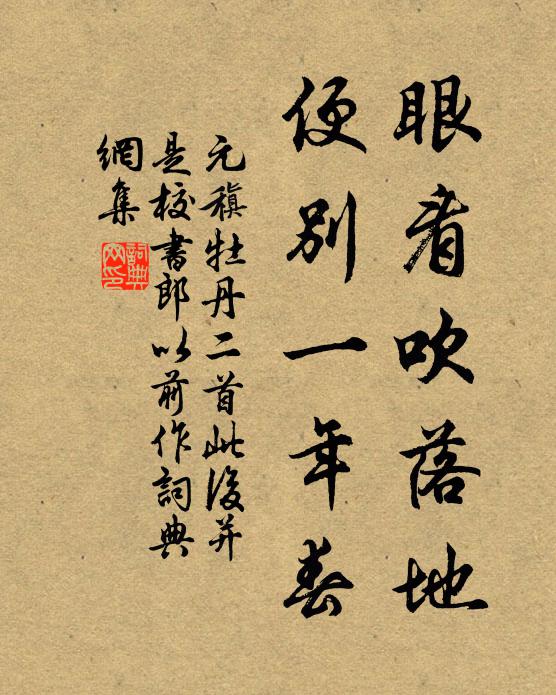 眼看吹落地
便別一年春
元稹牡丹二首此後并
是校書郎以前作詞典
網集
詞典
网印